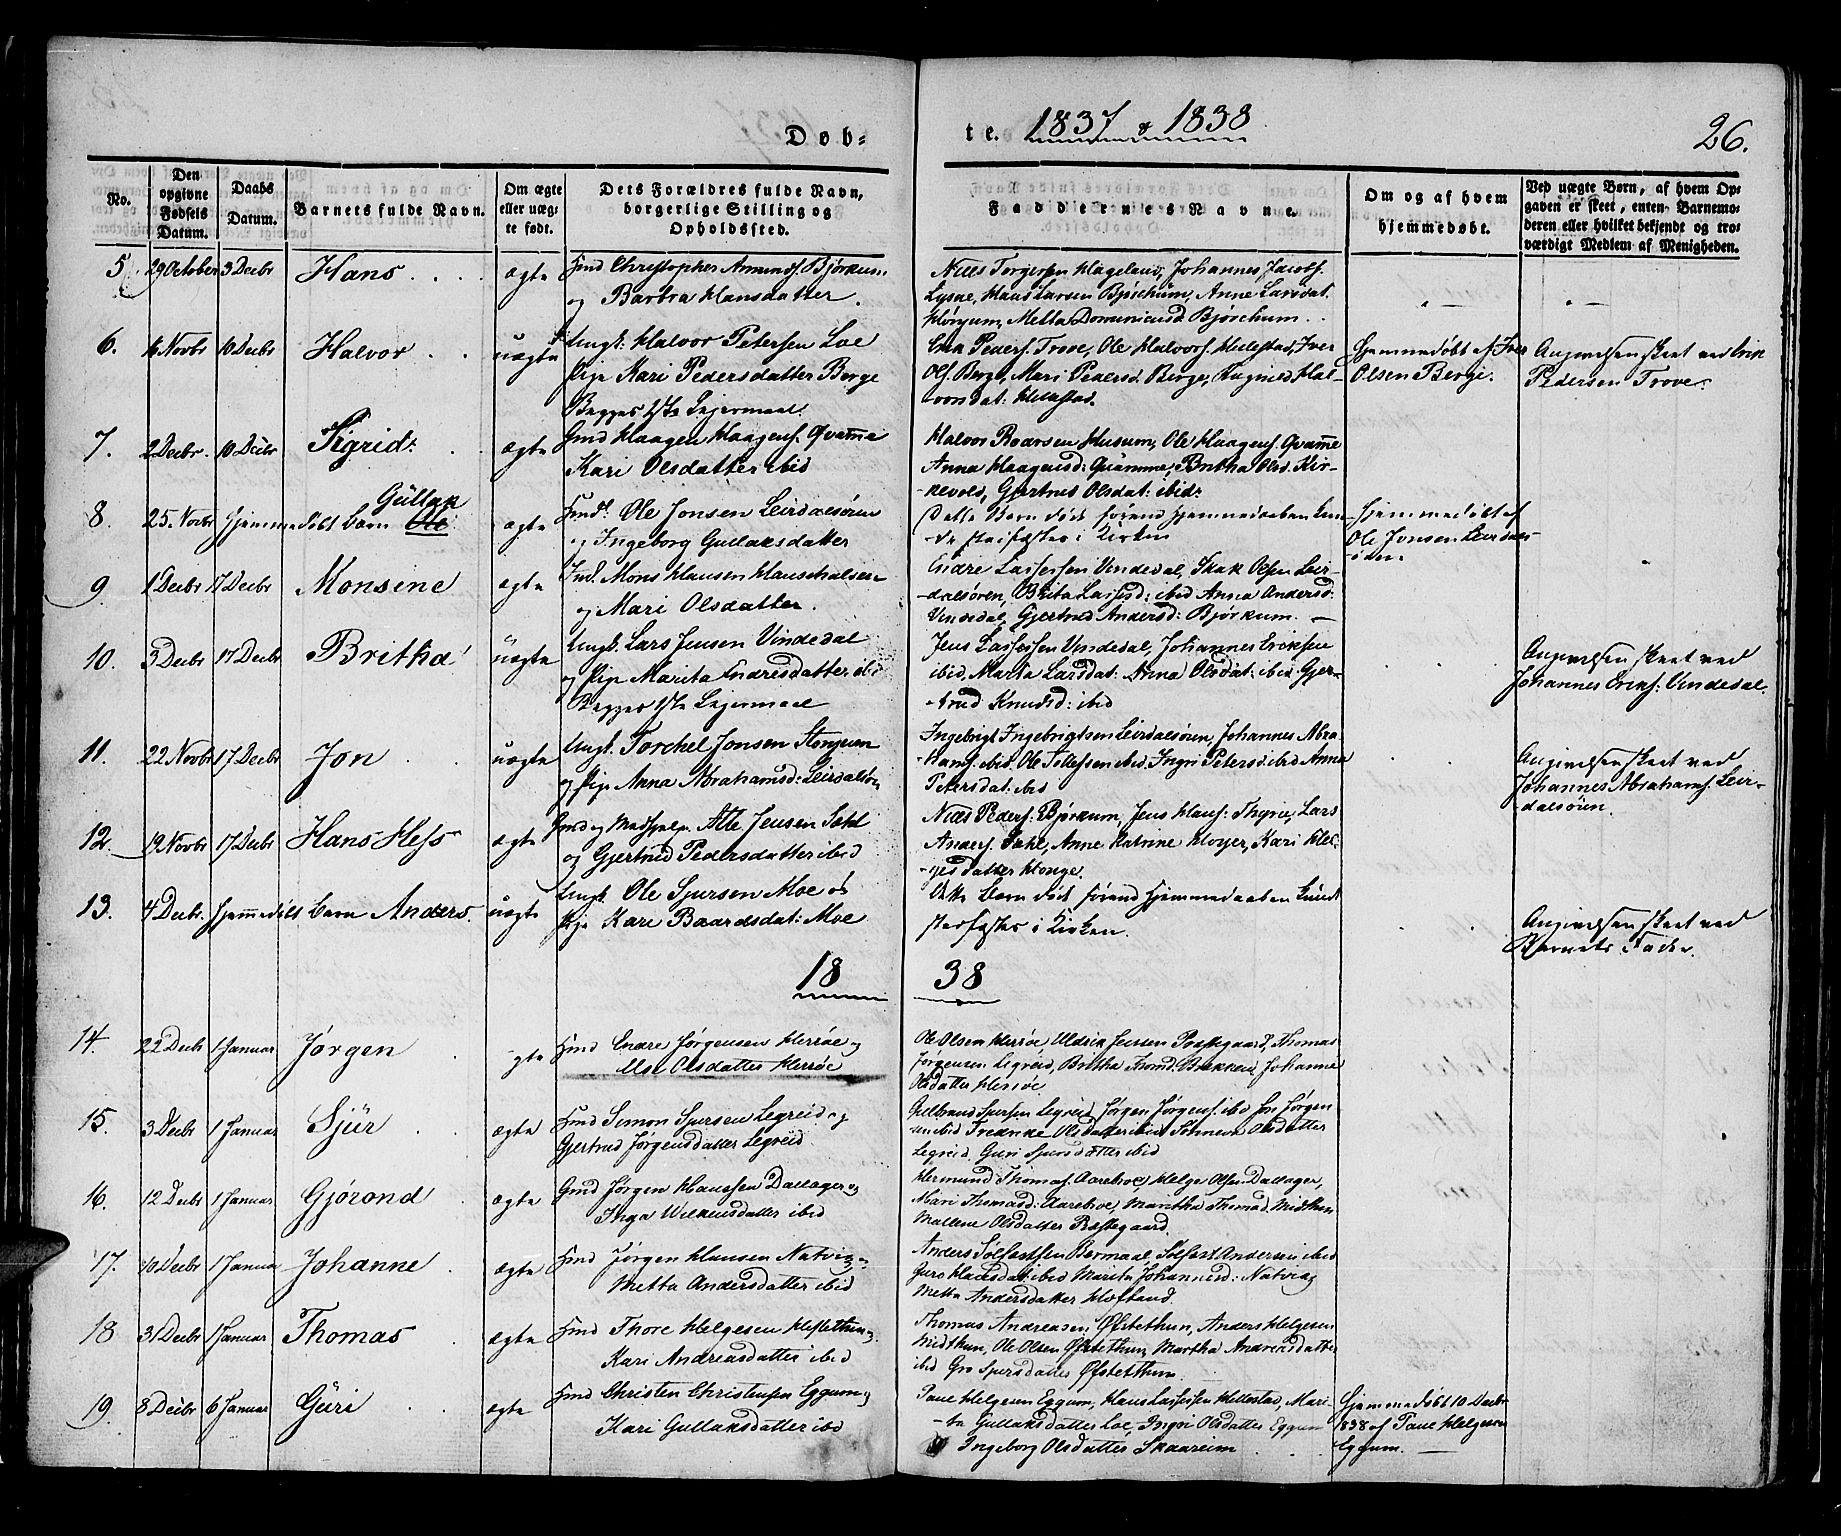 Døb-
te. 1837 & 1838
26.
No.
Den opgivne Fødsels Datum.
Daabs Datum.
Barnets fulde Navn.
Om ægte eller uægte født.
Dets Forældres fulde Navn, borgerlige Stilling og Opholdssted.
Faddernes Navne.
Om og af hvem hjemmedøbt.
Ved uægte Børn, af hvem Opgaven er skeet, enten Barnemoderen eller hvilket bekjendt og troværdigt Medlem af Menigheden.
5 29 October 3 Decbr Hans ægte Gmd Christopher Amunds. Bjørkum
og Barbra Hansdatter.
Niels Torgersen Hageland, Johannes Jacobs.
Lysne, Hans Larsen Bjørchum, Anne Larsdat.
Metta Dominicusd Bjørchum.
6. 16 Novbr 10 Decbr Halvor uægte Ungk. Halvor Petersen Loe
Pige Kari Pedersdatter Berge
Begges 1ste Lejermaal.
Erik Peders. Trove, Ole Halvors. Hellestad, Iver
Ols. Berge, Mari Pedersd. Berge, Ragnild Hal-
vorsdat: Hellestad.
Hjemmedøbt af Iver
Olsen Berge.
Angivelsen skeet ved Erik
Pedersen Trove.
7. 2 Decbr. 10 Decbr Sigrid ægte Gmd Haagen Haagens. Qvamme
Kari Olsdatter ibid
Halvor Baarsen Husum, Ole Haagens. Qvamme
Anna Haagensd: Quamme, Britha Olsd. Kir-
kevold, Gjertrud Olsdat: ibid:
8. 25. Novbr hjemmedøbt barn Gullak Ole ægte Huusd. Ole Jonsen Leirdalsøren
og Ingeborg Gullaksdatter
Dette Barn døde førend Hjemmedaaben kun-
de stadfæstes i Kirken
Hjemmedøbt af
Ole Jonsen Leirdals-
øren.
9. 1 Decbr 17 Decbr Monsine ægte Ind. Mons Hansen
og Mari Olsdatter.
Endre Lassesen Vindedal, Skak Olsen Leir-
dalsøren, Brita Lassesd: ibid Anna Andersd:
Vindedal, Gjertrud Andersd: Bjørkum.
10. 3 Decbr 17 Decbr Britha uægte Ungk. Lars Jensen Vindedal
og Pige Marita Endresdatter ibid
Begges 1ste Lejermaal
Jens Lassesen Vindedal, Johannes Eriksen
ibid, Marta Larsdat: Anna Olsdat: ibid. Gjer-
trud Knudsd: ibid
Angivelsen skeet ved
Johannes Eriks: Vindedal.
11. 22 Novbr 17 Decbr Jon uægte Ungk. Torchel Jonsen
og Pige Anna Abrahamsd: Leirdalsør
Ingebrigt Ingebrigtsen Leirdalsøren, Johannes Abra-
hams. ibid. Ole Tollefsen ibid. Ingri Petersd: ibid Anna
Petersdat: ibid
Angivelsen skeet ved
Johannes Abrahams. Leir-
dalsøren.
12. 19 Novbr 17 Decbr Hans Hess ægte Gmd og Medhjelp. Atle Jensen Sahl
og Gjertrud Pedersdatter ibid
Niels Peders: Bjørkum, Jens Hans: Thynie, Lars
Anders. Sahl, Anne Katrine Kloyer, Kari Hel-
gesdatter Honge.
13. 4 Decbr. hjemmedøbt barn Anders. uægte Ungk. Ole Sjursen Moe og
Pige Kari Baardsdat: Moe
Dette Barn døde førend Hjemmedaaben kunde
stadfæstes i Kirken.
Angivelsen skeet ved
Barnets Fader.
18 38
14. 22 Decbr 1 Januar Jørgen ægte Gmd Endre Jørgensen Herrøe og
Else Olsdatter Herrøe
Ole Olsen Herrøe Uldrik Jensen Præstegaard, Thomas
Jørgensen Ligreid, Britha Bakken, Johanne
Olsdatter Herrøe
15. 3 Decbr 1 Januar Sjür ægte Gmd Simon Sjursen Legreid og
Gjertrud Jørgensdatter Legreid
Gulbrand Sjursen Legreid, Jørgen Jørgens. ibid Jon Jørgen-
sen ibid Fredrike Olsdatter ibid Sønneva Olsdatter
Legreid, Guri Sjursdatter ibid
16. 12 Decbr 1 Januar Gjørond ægte Gmd Jørgen Hanssen Dallager og
Inga Willumsdatter ibid
Hermund Thomas. Aarebroe, Helge Olsen Dallager,
Mari Thomasd: Aarebroe, Maritha Thomasd. Midthun
Mallene Olsdatter Præstegaard.
17. 10 Decbr 1 Januar Johanne ægte Gmd Jørgen Hansen Natvig og
Metta Andersdatter ibid
Anders Solfæstsen Bermaal, Solfæst Andersen ibid
Guro Hansdat: ibid Marita Johannesd: Natvig
Metta Andersdatter Hofland.
18 31 Decbr 1 Januar Thomas ægte Gmd Thore Helgesen
Kari Andreasdatter ibid
Thomas Andreasen Øfstethun, Anders Helgesen
Midthun, Ole Olsen Øfstethun, Martha Andreasdatter
ibid Gro Sjursdatter Øfstetthun.
19. 8 Decbr 6 Januar Güri ægte Gmd Christen Christensen Eggum og
Kari Gullaksdatter ibd
Paul Helgesen Eggum, Hans Lassesen Hellestad, Mari-
ta Gullaksdatter Loe, Ingri Olsdatter Eggum
Ingeborg Olsdatter Skaareim
Hjemmedøbt 10 Decbr
1838 af Paul Helgesen
Eggum.